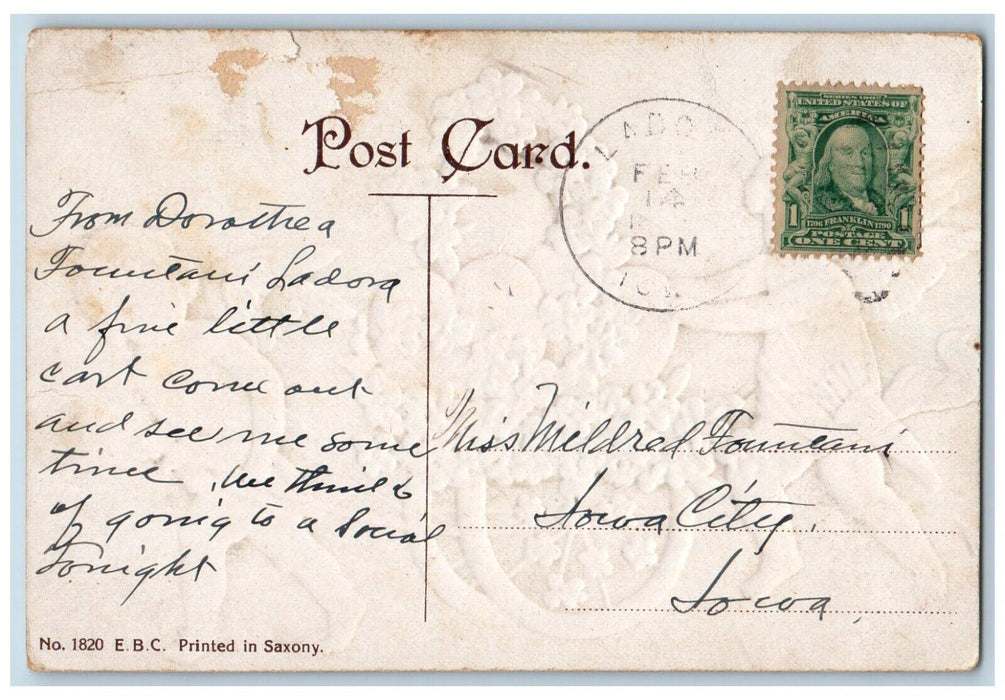 Post Card.
LADO
FEB
14
8PM
IOW
SERIES 1902
UNITED STATES OF
AMERICA
1 1
1706 FRANKLIN 1790
POSTAGE
ONE CENT
From Dorothea
Fountain Ladora
a fine little
cart come out
and see me some
time. We think
of going to a Social
tonight
Miss Mildred Fountain
Iowa City,
Iowa,
No. 1820 E.B.C. Printed in Saxony.